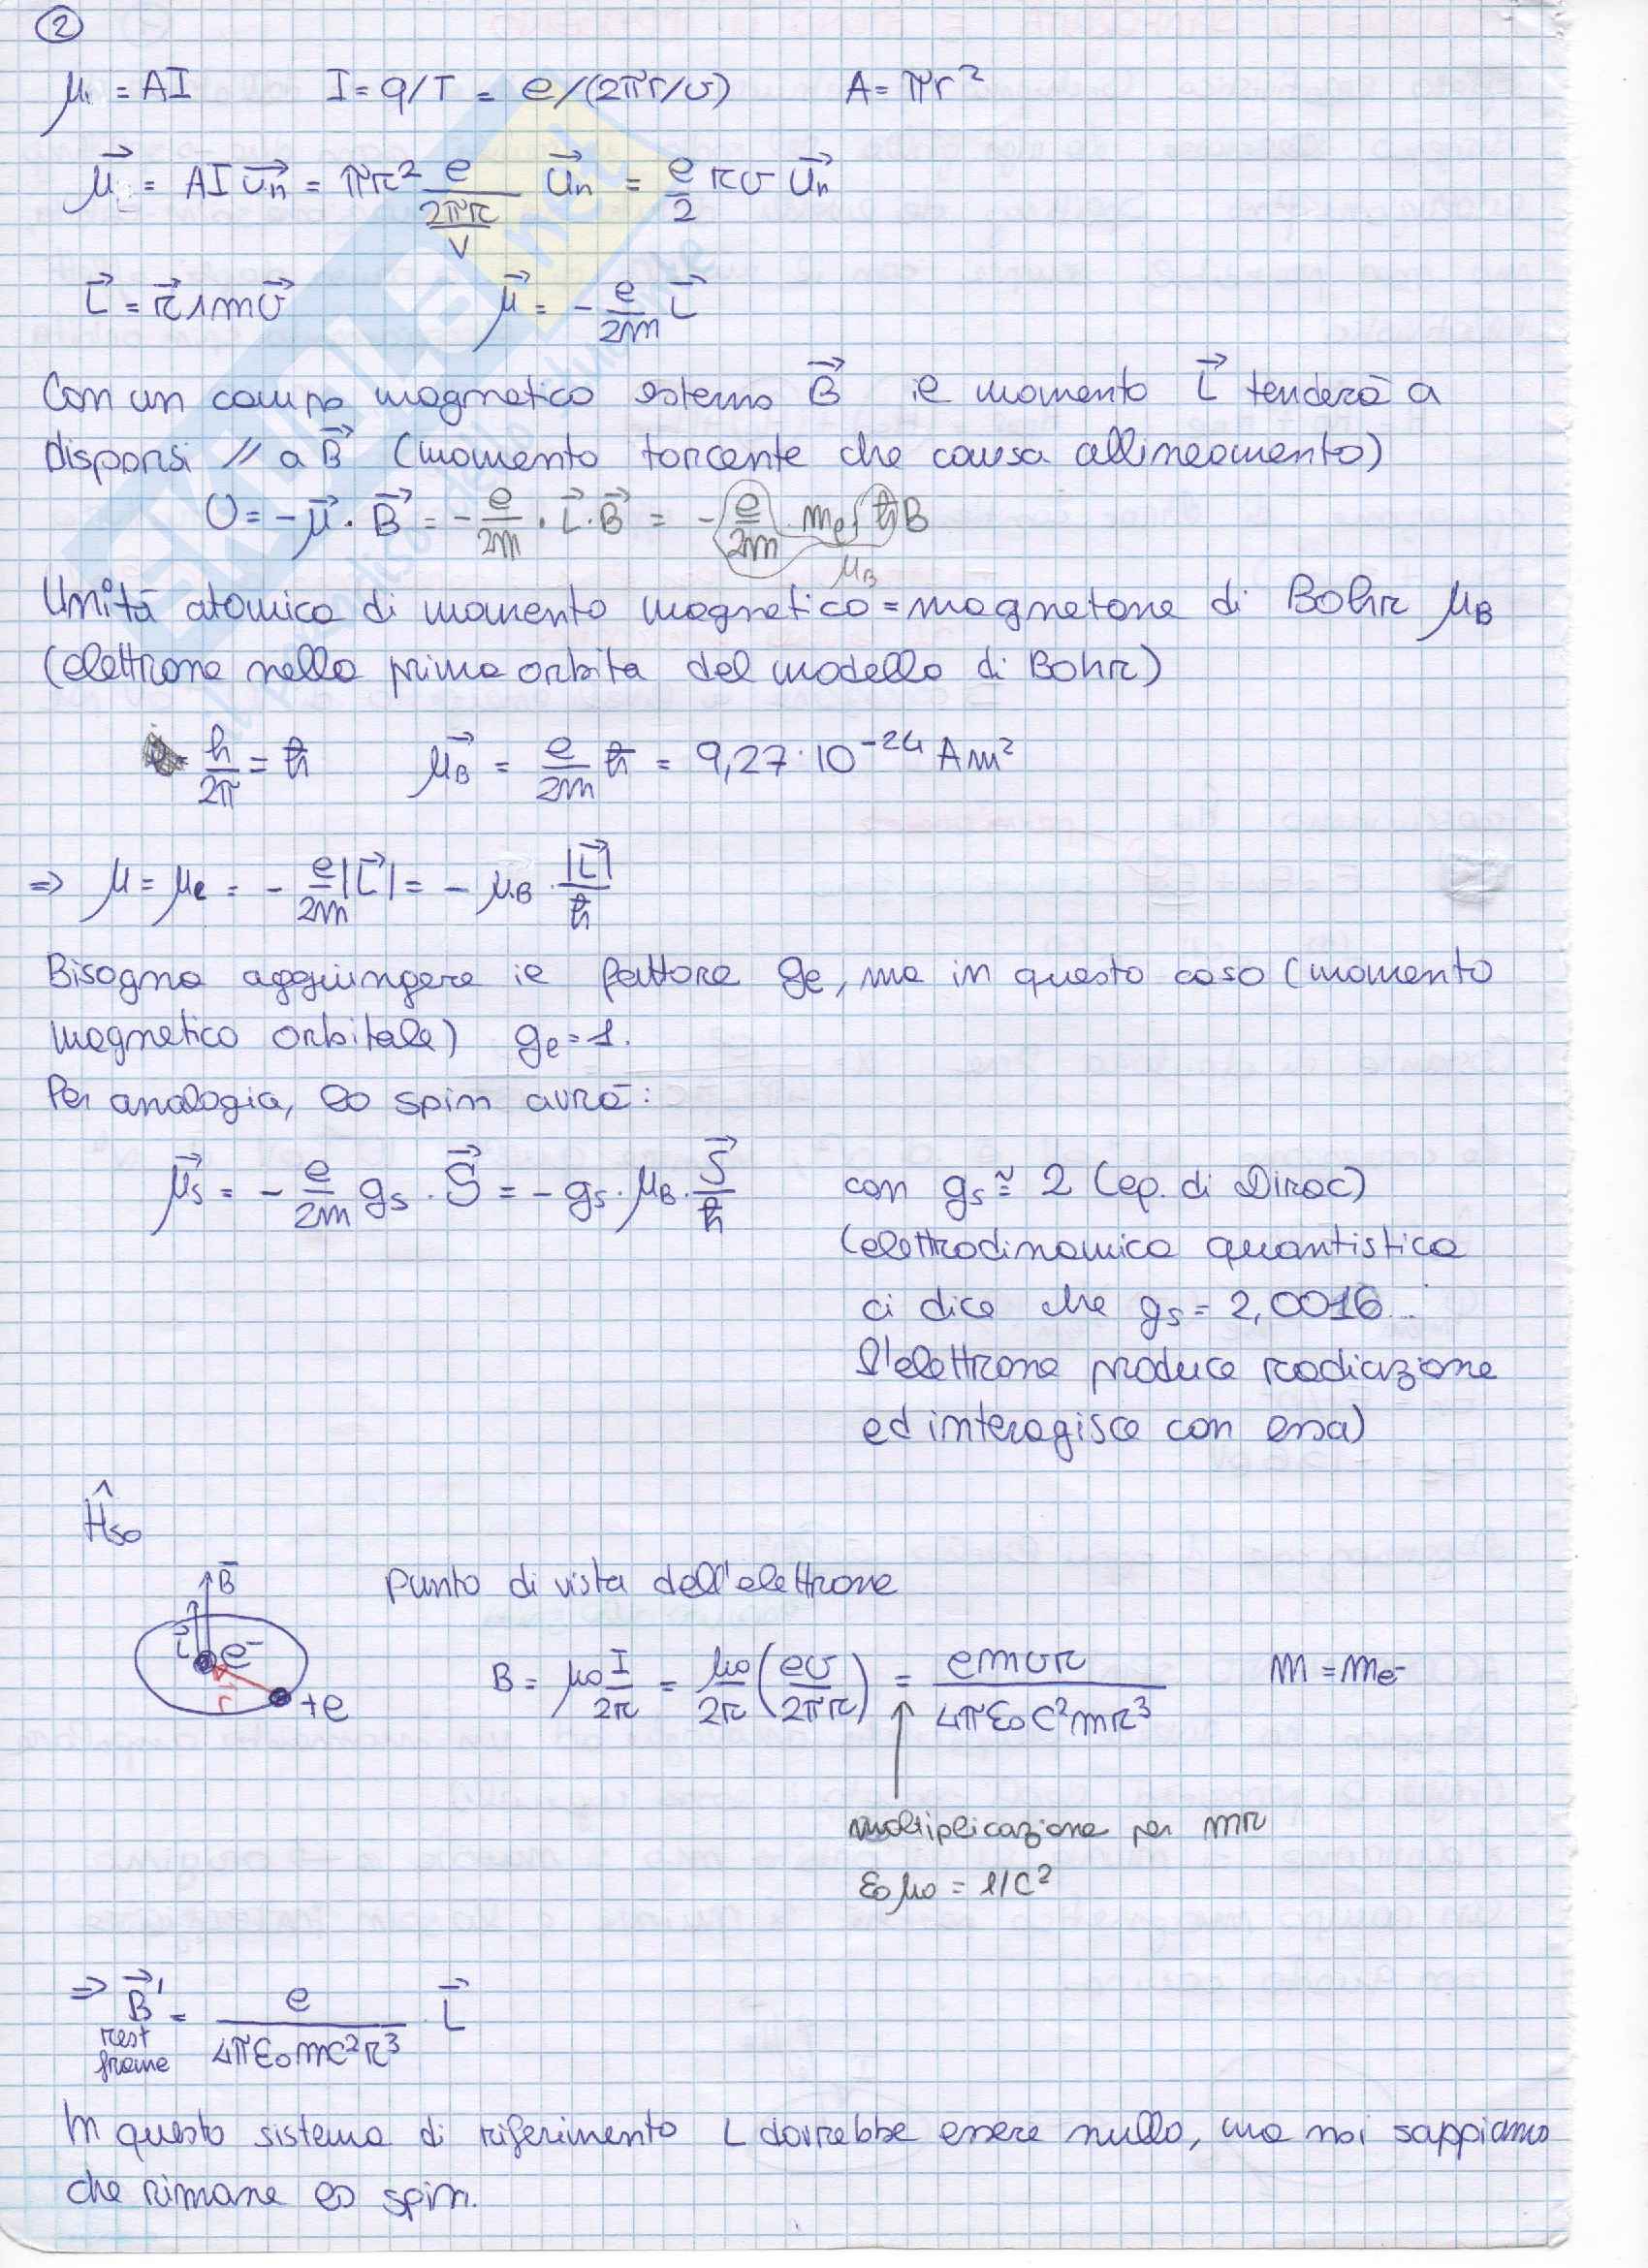 2
μ = AI I = q/T = e/(2πr/v) A = πr²
μ⃗ = AI u⃗n = πr² e/(2πr/v) u⃗n = e/2 r v u⃗n
L⃗ = r⃗ ∧ m v⃗ μ⃗ = - e/2m L⃗
Con un campo magnetico esterno B⃗ il momento L⃗ tenderà a
disporsi // a B⃗ (momento torcente che causa allineamento)
U = -μ⃗ · B⃗ = - e/2m · L⃗ · B⃗ = - e/2m · mℓ ħ B
μB
Unità atomica di momento magnetico = magnetone di Bohr μB
(elettrone nella prima orbita del modello di Bohr)
h/2π = ħ μ⃗B = e/2m ħ = 9,27 · 10⁻²⁴ Am²
⇒ μ = μℓ = - e/2m |L⃗| = - μB · |L⃗|/ħ
Bisogna aggiungere il fattore gℓ, ma in questo caso (momento
magnetico orbitale) gℓ = 1.
Per analogia, lo spin avrà:
μ⃗s = - e/2m gs · S⃗ = - gs · μB · S⃗/ħ con gs ≅ 2 (eq. di Dirac)
(elettrodinamica quantistica
ci dice che gs = 2,0016...
l'elettrone produce radiazione
ed interagisce con essa)
Ĥso
B̄
Punto di vista dell'elettrone
L⃗ e⁻
r⃗ +e
B = μ0 I/2r = μ0/2r (ev/2πr) = emvr/4πε0c²mr³ m = me⁻
moltiplicazione per mr
ε0μ0 = 1/c²
⇒ B⃗' = e/4πε0mc²r³ · L⃗
rest
frame
In questo sistema di riferimento L dovrebbe essere nullo, ma noi sappiamo
che rimane lo spin.